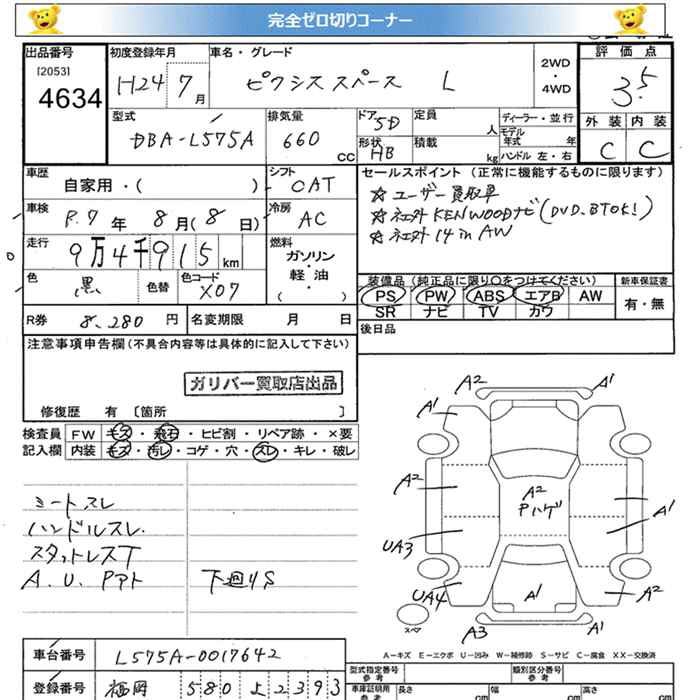 完全ゼロ切りコーナー
出品番号 初度登録年月 車名・グレード 2WD ・ 4WD 評価点
[2053]
4634 H24 7月 ピクシススペース L 3.5
型式 排気量 ドア 5D 定員 人 ディーラー・並行 外装 内装
DBA-L575A 660 CC 形状 HB 積載 kg モデル年式 年 ハンドル 左・右 C C
車歴 自家用・( ) シフト CAT セールスポイント (正常に機能するものに限ります)
車検 R.7年 8月(8日) 冷房 AC
☆ユーザー買取車
☆社外KENWOODナビ(DVD、BTOK!)
☆社外14inAW
走行 9万4千915km 燃料 ガソリン・軽・油・( )
色 黒 色替 色コード X07
装備品(純正品に限り○をつけてください) 新車保証書
PS PW ABS エアB AW 有・無
SR ナビ TV カワ
R券 8,280円 名変期限 月 日 後日品
注意事項申告欄(不具合内容等は具体的に記入して下さい)
ガリバー買取店出品
修復歴 有 [箇所 ]
検査員 FW キズ・飛石・ヒビ割・リペア跡・×要
記入欄 内装 キズ・汚レ・コゲ・穴・スレ・キレ・破レ
シートスレ
ハンドルスレ.
スタットレスT
A.U.Pアト 下廻りS
A2 A1
A1
A2 A2 Pハゲ A1
UA3
UA4 A1 A2
スペア A3 A1
A-キズ E-エクボ U-凹み W-補修跡 S-サビ C-腐食 XX-交換済
車台番号 L575A-0017642
型式指定番号 参考 類別区分番号 参考
登録番号 福岡 580 よ 2393
車庫証明用 参考 長さ cm 幅 cm 高さ cm